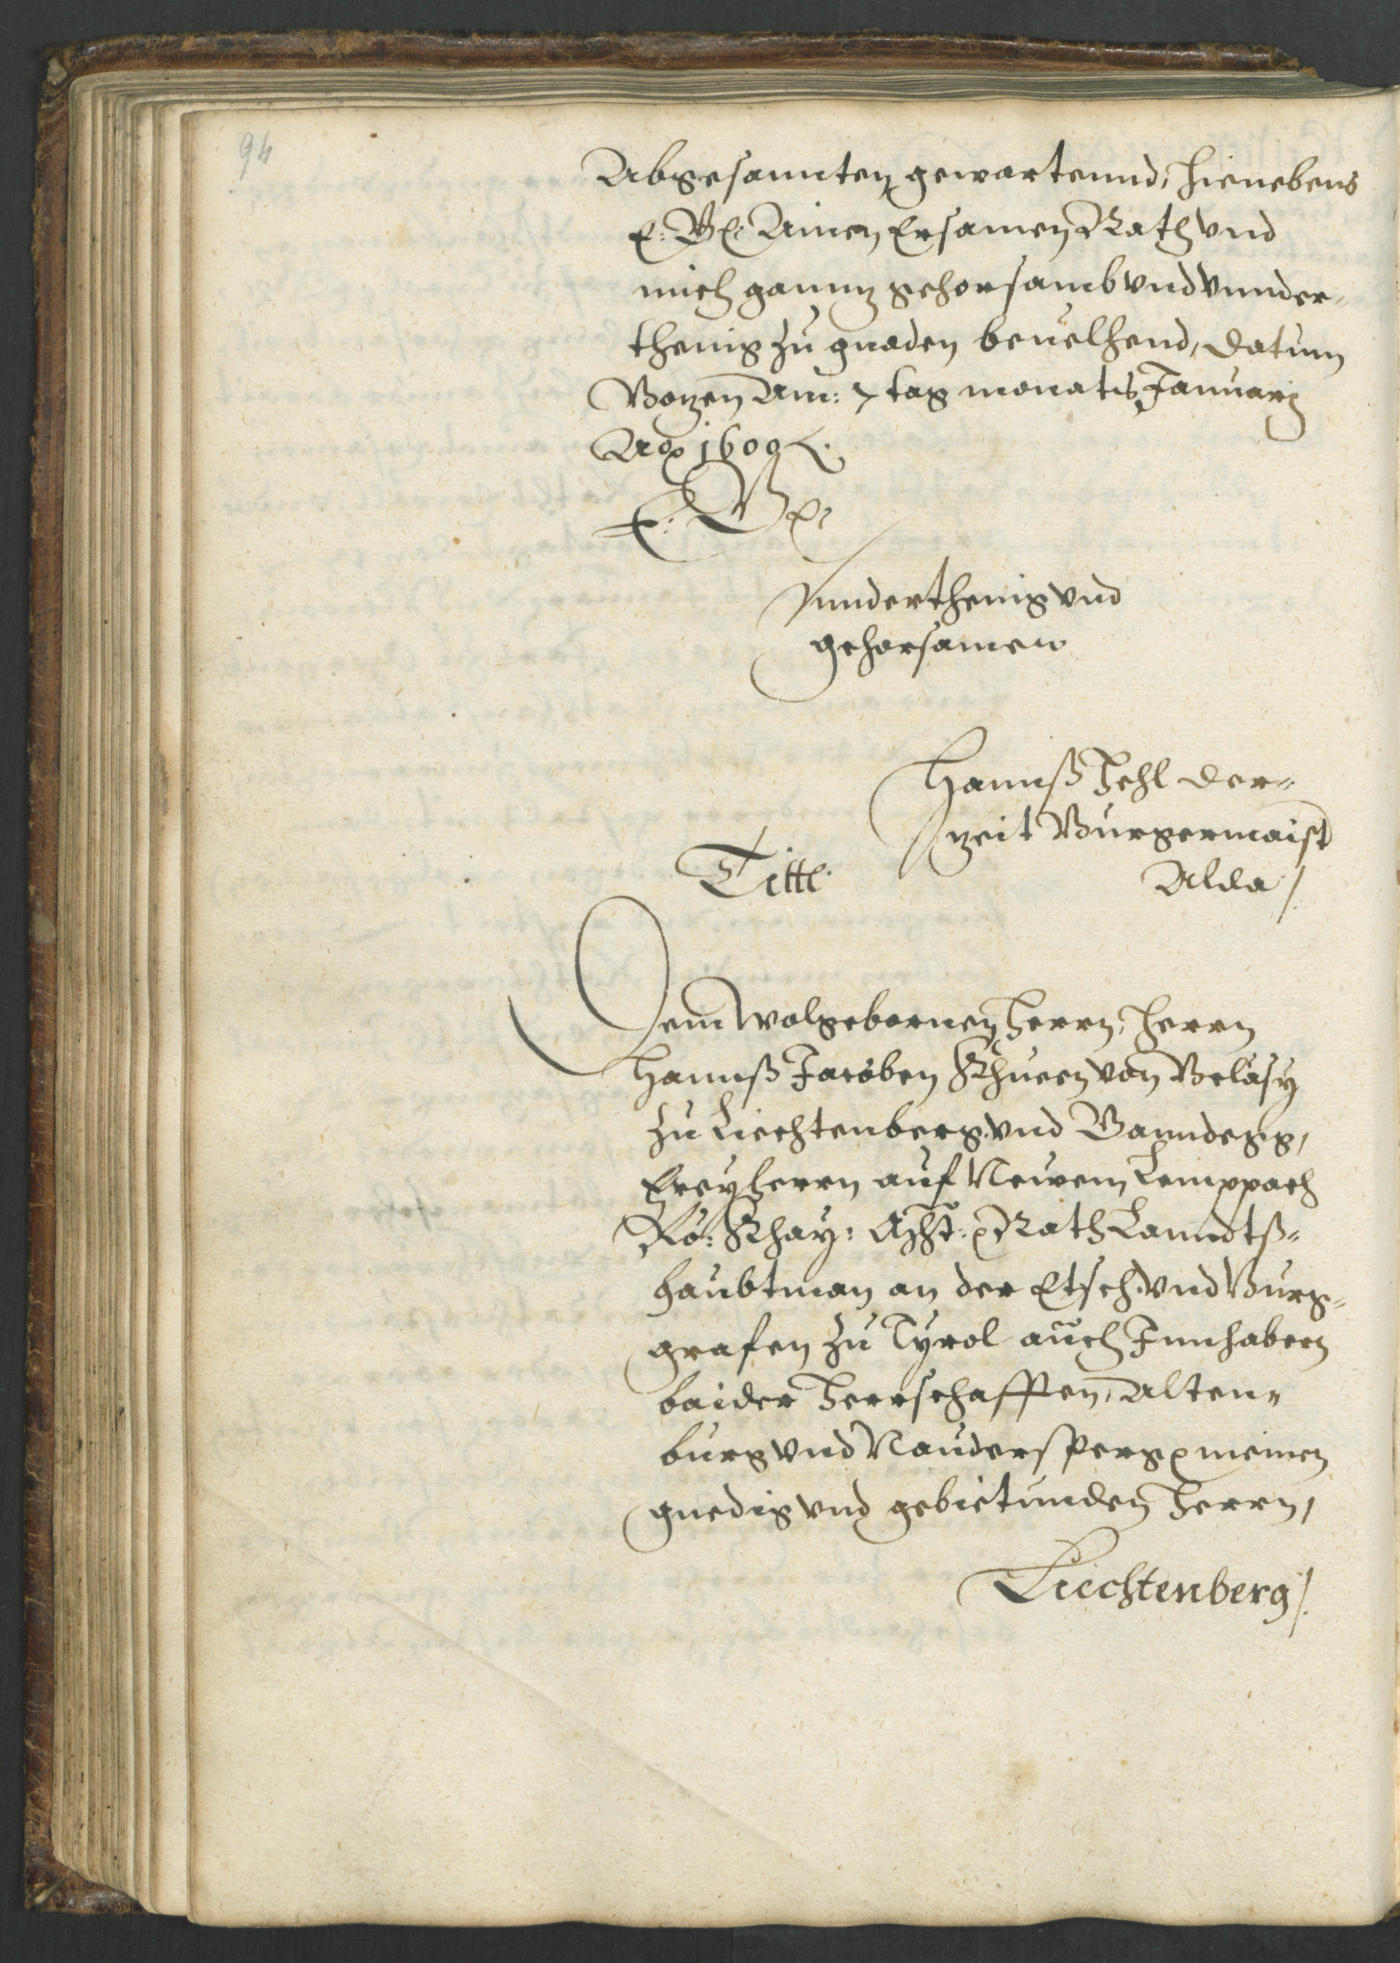 94
Abgesannten gewartennd, hienebens
E: Gn Ainen Ersamen Rath vnd
mich gannz gehorsamb vnd vnnder-
thenig zu gnaden beuelhend, Datum
Bozen Am: 7 tag monats Januarÿ
Ao 1600
E: Gn
Vnnderthenig vnd
gehorsamen
Hannß Zehl der=
zeit Burgermaist
Titl
Alda /.
Dem Wolgebornen Herrn, Herrn
Hannß Jacoben Khuen von Belasy
zu Liechtenberg vnd Ganndegg,
Freyherrn auf Newem Lempach
Rö: Khay: Mt: Rath Lanndtß=
haubtman an der Etsch vnd Burg=
grafen zu Tyrol auch Innhabern
baider Herrschafften, Alten=
burg vnd Naudersperg meinen
gnedig vnd gebietunden Herrn,
Liechtenberg /.